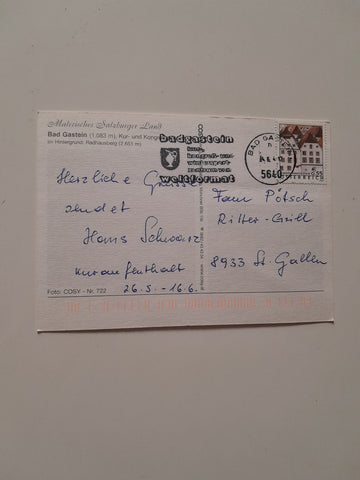 Malerisches Salzburger Land
Bad Gastein (1.083 m), Kur- und Kong
Im Hintergrund: Radhausberg (2.651 m)
badgastein
kur,
kongreß- und
wintersport
zentrum von
weltformat
BAD GAS
5640
Herzliche Grüsse
sendet
Hans Schwarz
Kuraufenthalt
26.5. - 16.6.
Fam Pötsch
Ritter-Grill
8933 St. Gallen
Foto: COSY - Nr. 722